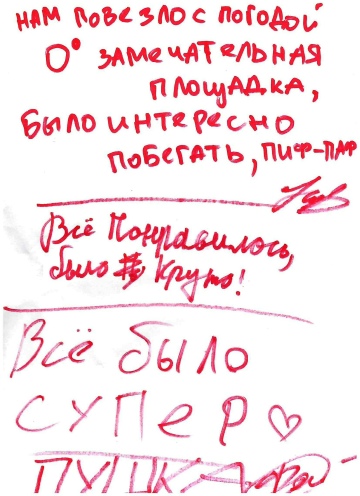 НАМ ПОВЕЗЛО С ПОГОДОЙ
0° ЗАМЕЧАТЕЛЬНАЯ
ПЛОЩАДКА,
БЫЛО ИНТЕРЕСНО
ПОБЕГАТЬ, ПИФ-ПАФ
Всё Понравилось,
было Круто!
Всё было
СУПЕР♡
ПУШКА